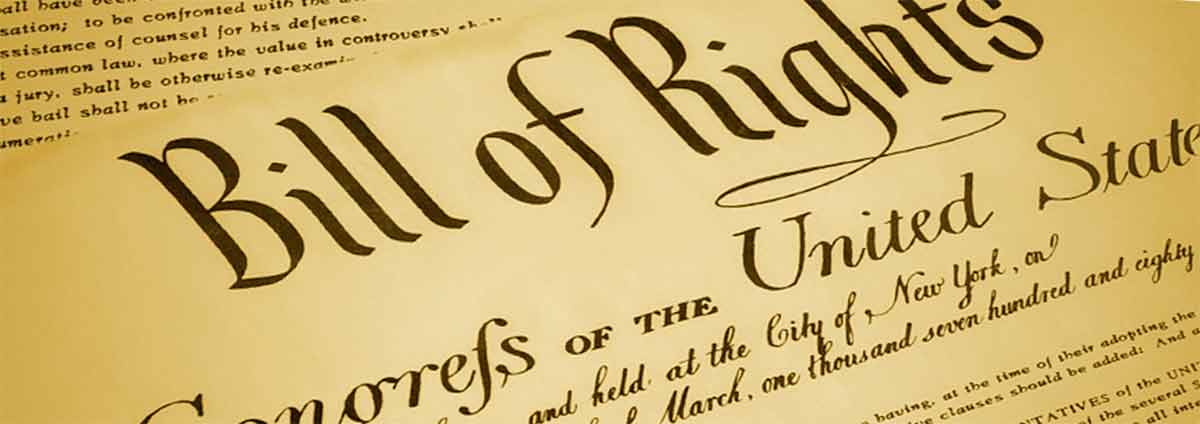 all have been
sation; to be confronted with the
ssistance of counsel for his defence.
t common law, where the value in controversy sh
a jury, shall be otherwise re-exami
ve bail shall not be
umerati
Bill of Rights
Congreſs OF THE United State
and held at the City of New York, on
March, one thousand seven hundred and eighty
having, at the time of their adopting the
ve clauses should be added: And a
NTATIVES of the UNI
of the several S
all inte